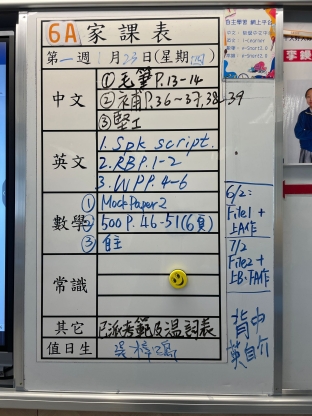 6A 家課表
第一週 1月23日(星期四)
中文
①毛筆P.13-14
②補P.36~37,38-39
③堅工
英文
1. Spk script.
2. RB P.1-2
3. WPP.4-6
數學
① Mock Paper 2
② 500 P.46-51(6頁)
③ 自主
常識
其它
已派考範及溫詞表
值日生
6/2:
File1 +
上A作
7/2
File2 +
上B.F.A作
背中
英自介
自主學習 網上平台